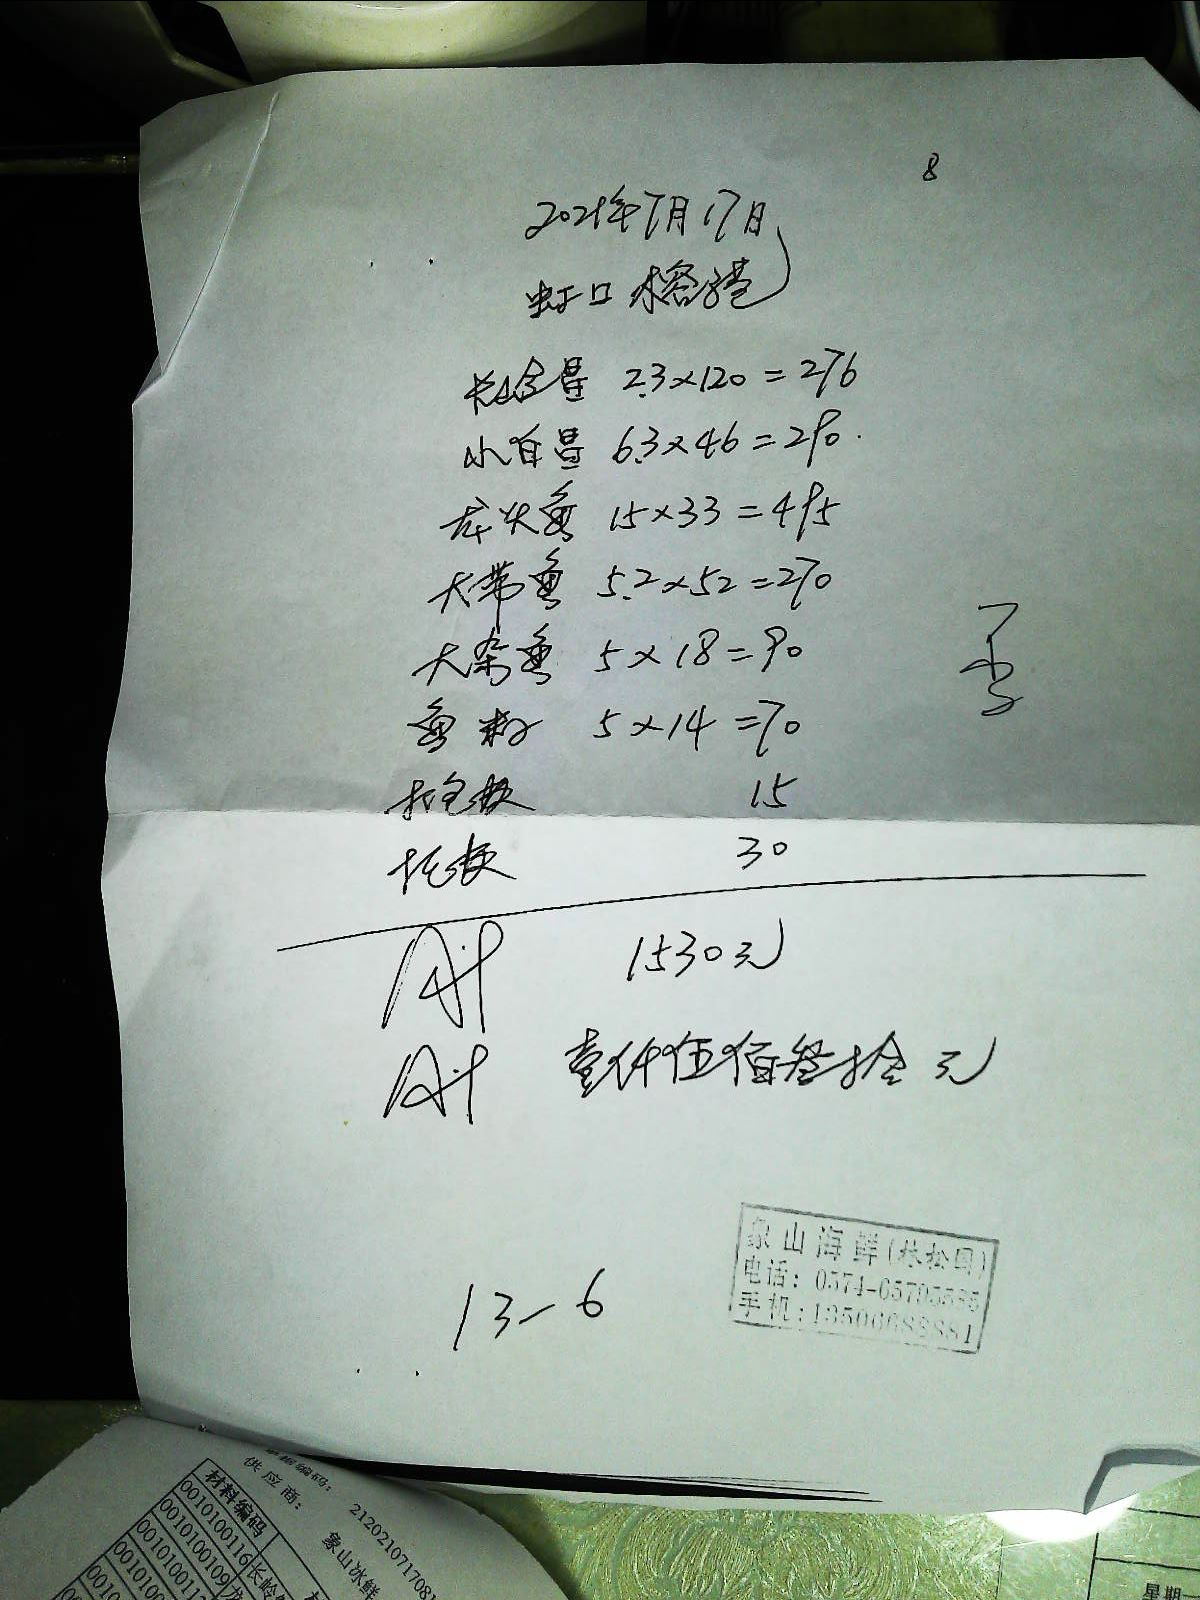 8
2021年7月17日
虹口榕港
长岭昌 2.3×120=276
小白昌 6.3×46=290.
龙头鱼 15×33=495
大带鱼 5.2×52=270
大杂鱼 5×18=90
鱼籽 5×14=70
打包费 15
托费 30
1530元
壹仟伍佰叁拾元
13-6
象山海鲜(林松国)
电话:
手机:
供应商:
象山冰鲜
材料编码
0010100116 长岭
0010100109 龙
星期一